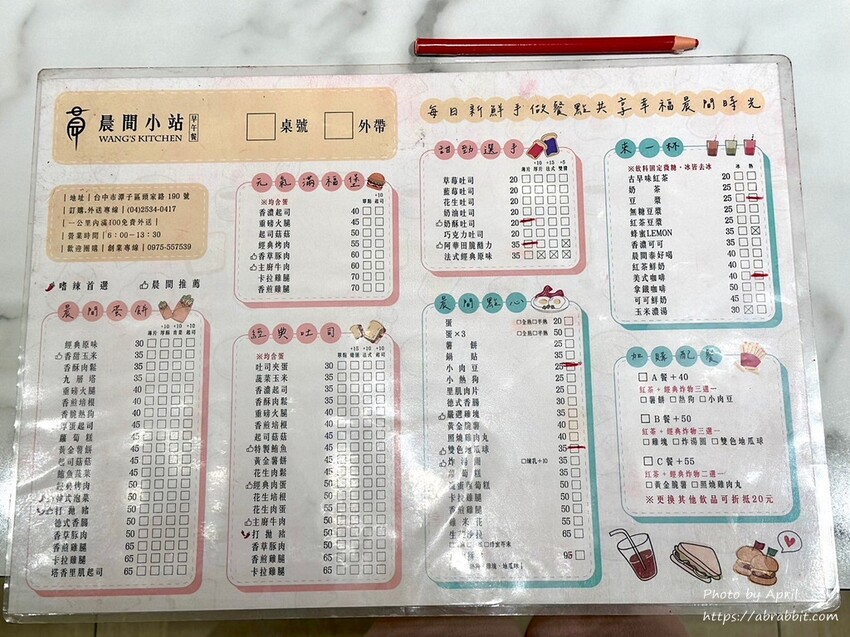 晨間小站
早午餐
WANG'S KITCHEN
桌號
外帶
每日新鮮手做餐點共享幸福晨間時光
|地址|台中市潭子區頭家路 190 號
|訂購.外送專線|(04)2534-0417
|一公里內滿100免費外送|
|營業時間|6:00-13:30
|歡迎團購|創業專線|0975-557539
嗜辣首選
晨間推薦
晨間蛋餅
+10 +10 +10 +10
經典原味 30
香甜玉米 35
香酥肉鬆 35
九層塔 35
重磅火腿 40
香煎培根 40
香脆熱狗 40
蘿蔔糕
黃金薯餅
起司菇菇
鮪魚蔬菜
打拋豬
德式香腸
香草豚肉 50
香煎雞腿 65
卡拉雞腿 65
塔香里肌起司 65
元氣滿福堡
+10
單點 起司
※均含蛋
香濃起司 40
重磅火腿 50
起司菇菇 50
經典烤肉 55
香草豚肉 60
主廚牛肉 60
卡拉雞腿 70
香煎雞腿 70
經典吐司
+15 +10 +10
※均含蛋
吐司夾蛋 30
蔬菜玉米 35
香濃起司 35
香酥肉鬆 35
重磅火腿 40
香煎培根 40
起司菇菇 40
特製鮪魚 45
黃金薯餅 45
花生肉鬆 45
經典肉蛋 50
花生培根 50
花生肉蛋 50
主廚牛肉 50
打拋豬 50
香草豚肉 50
香煎雞腿 65
卡拉雞腿 65
甜勁選手
+10 +15 +5
薄片 厚片 法式 雙醬
草莓吐司 20
藍莓吐司 20
花生吐司 20
奶油吐司 20
奶酥吐司 20
巧克力吐司 20
阿華田脆酷力 35
法式經典原味 35
晨間點心
蛋 □全熟□半熟 20
蛋×3 □全熟□半熟 50
薯餅
鍋貼
小肉豆 25
小熱狗 35
里肌肉片 35
德式香腸 30
嚴選雞塊 35
黃金脆薯 35
照燒雞肉丸 40
雙色地瓜球 35
炸湯圓 □煉乳+10 35
卡拉雞腿 50
香煎雞腿 50
雞米花 55
95
來一杯
冰 熱
※飲料固定微糖・冰皆去冰
古早味紅茶 20
奶茶 25
豆漿 25
無糖豆漿 25
紅茶豆漿 25
蜂蜜LEMON 35
香濃可可 35
晨間泰好喝 35
紅茶鮮奶 40
美式咖啡 40
拿鐵咖啡 50
可可鮮奶 45
玉米濃湯 30
加購配餐
□ A 餐+40
紅茶+經典炸物三選一
□薯餅 □熱狗 □小肉豆
□ B餐+50
紅茶+經典炸物三選一
□雞塊 □炸湯圓 □雙色地瓜球
□ C餐+55
紅茶+經典炸物二選一
□黃金脆薯 □照燒雞肉丸
※更換其他飲品可折抵20元
Photo by April
https://abrabbit.com